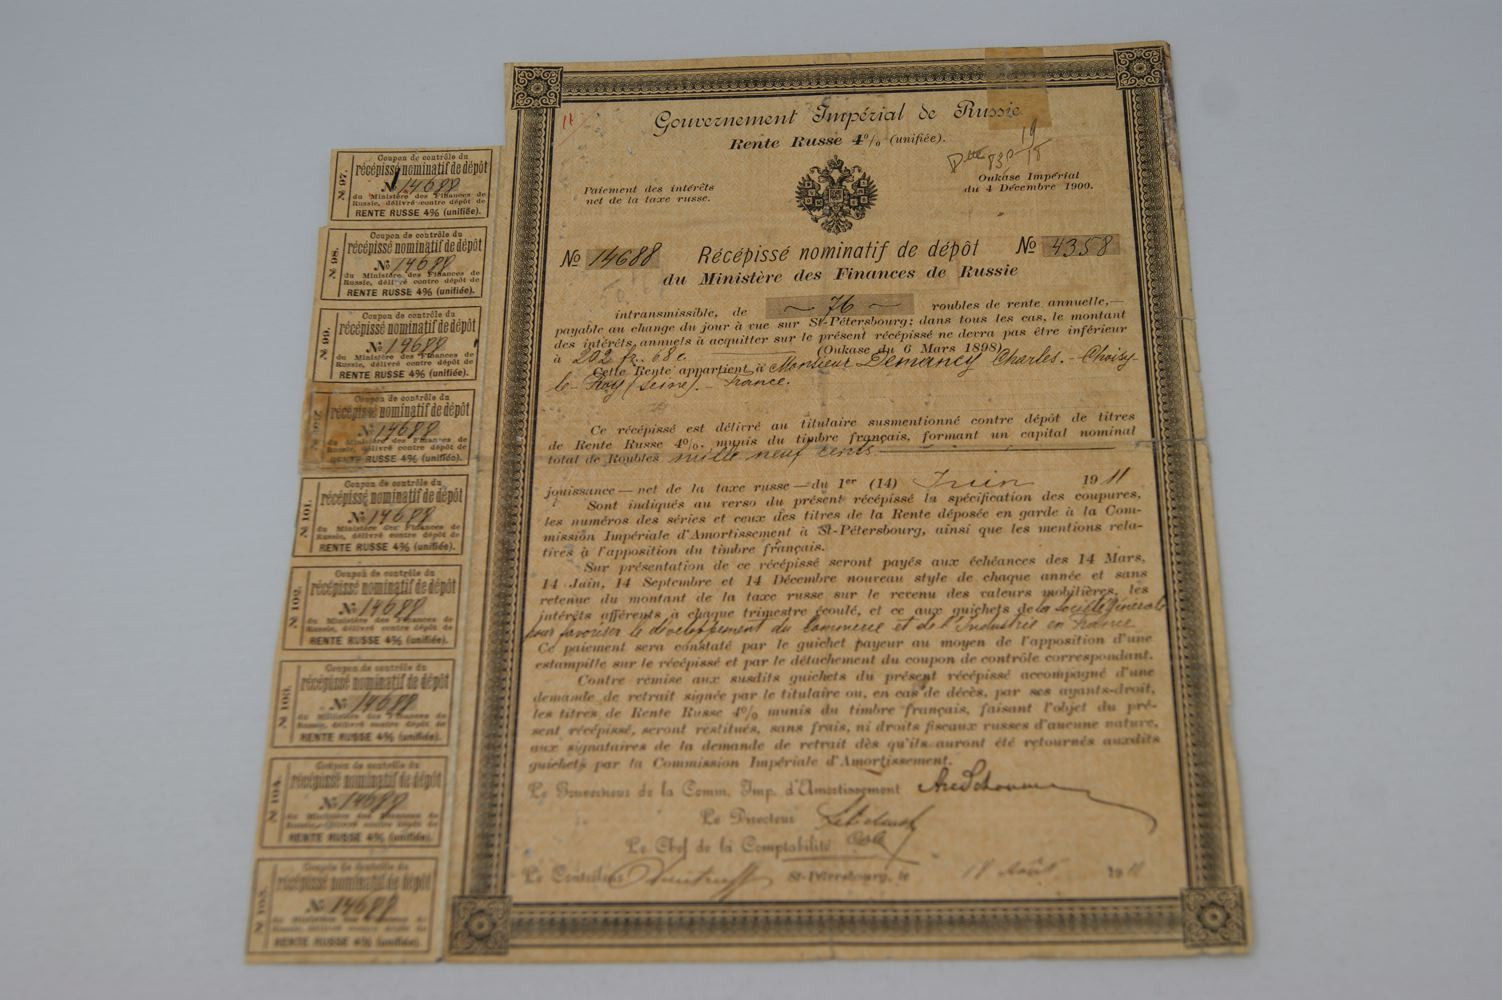 Gouvernement Impérial de Russie
Rente Russe 4% (unifiée).
Paiement des intérêts
net de la taxe russe.
Oukase Impérial
du 4 Décembre 1900.
№ 14688 Récépissé nominatif de dépôt № 4358
du Ministère des Finances de Russie
intransmissible, de ~ 76 ~ roubles de rente annuelle,—
payable au change du jour à vue sur St-Pétersbourg; dans tous les cas, le montant
des intérêts annuels à acquitter sur le présent récépissé ne devra pas être inférieur
à 202 fr. 68 c. (Oukase du 6 Mars 1898)
Cette Rente appartient à Monsieur Demancy Charles.- Choisy-
le-Roy (Seine).- France.
Ce récépissé est délivré au titulaire susmentionné contre dépôt de titres
de Rente Russe 4%, munis du timbre français, formant un capital nominal
total de Roubles mille neuf cents
jouissance — net de la taxe russe — du 1er (14) Juin 1911
Sont indiqués au verso du présent récépissé la spécification des coupures,
les numéros des séries et ceux des titres de la Rente déposée en garde à la Com-
mission Impériale d'Amortissement à St-Pétersbourg, ainsi que les mentions rela-
tives à l'apposition du timbre français.
Sur présentation de ce récépissé seront payés aux échéances des 14 Mars,
14 Juin, 14 Septembre et 14 Décembre nouveau style de chaque année et sans
retenue du montant de la taxe russe sur le revenu des valeurs mobilières, les
intérêts afférents à chaque trimestre écoulé, et ce aux guichets de la Société Générale
pour favoriser le développement du Commerce et de l'Industrie en France
Ce paiement sera constaté par le guichet payeur au moyen de l'apposition d'une
estampille sur le récépissé et par le détachement du coupon de contrôle correspondant.
Contre remise aux susdits guichets du présent récépissé accompagné d'une
demande de retrait signée par le titulaire ou, en cas de décès, par ses ayants-droit,
les titres de Rente Russe 4% munis du timbre français, faisant l'objet du pré-
sent récépissé, seront restitués, sans frais, ni droits fiscaux russes d'aucune nature,
aux signataires de la demande de retrait dès qu'ils auront été retournés auxdits
guichets par la Commission Impériale d'Amortissement.
Le Gouverneur de la Comm. Imp. d'Amortissement
Le Directeur
Le Chef de la Comptabilité
Le Contrôleur
St-Pétersbourg, le 18 Août 1911
№ 97.
Coupon de contrôle du
récépissé nominatif de dépôt
№ 14688
du Ministère des Finances de
Russie, délivré contre dépôt de
RENTE RUSSE 4% (unifiée).
№ 98.
Coupon de contrôle du
récépissé nominatif de dépôt
№ 14688
du Ministère des Finances de
Russie, délivré contre dépôt de
RENTE RUSSE 4% (unifiée).
№ 99.
Coupon de contrôle du
récépissé nominatif de dépôt
№ 14688
du Ministère des Finances de
Russie, délivré contre dépôt de
RENTE RUSSE 4% (unifiée).
Coupon de contrôle du
récépissé nominatif de dépôt
№ 14688
du Ministère des Finances de
Russie, délivré contre dépôt de
RENTE RUSSE 4% (unifiée).
№ 101.
Coupon de contrôle du
récépissé nominatif de dépôt
№ 14688
du Ministère des Finances de
Russie, délivré contre dépôt de
RENTE RUSSE 4% (unifiée).
№ 102.
Coupon de contrôle du
récépissé nominatif de dépôt
№ 14688
du Ministère des Finances de
Russie, délivré contre dépôt de
RENTE RUSSE 4% (unifiée).
№ 103.
Coupon de contrôle du
récépissé nominatif de dépôt
№ 14688
du Ministère des Finances de
Russie, délivré contre dépôt de
RENTE RUSSE 4% (unifiée).
№ 104.
Coupon de contrôle du
récépissé nominatif de dépôt
№ 14688
du Ministère des Finances de
Russie, délivré contre dépôt de
RENTE RUSSE 4% (unifiée).
№ 105.
Coupon de contrôle du
récépissé nominatif de dépôt
№ 14688
du Ministère des Finances de
Russie, délivré contre dépôt de
RENTE RUSSE 4% (unifiée).